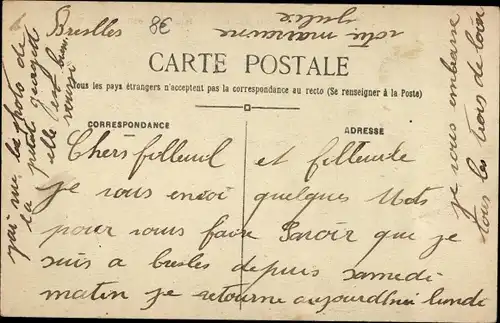 Breslles
8€
CARTE POSTALE
Tous les pays étrangers n'acceptent pas la correspondance au recto (Se renseigner à la Poste)
CORRESPONDANCE
ADRESSE
Chers filleul et filleude
je vous envoi quelques Mots
pour vous faire Savoir que je
suis a bresles depuis samedi
matin je retourne aujourdhui lundi
je vous embrasse
tous les trois de loin
votre marraine
j'ai vue la photo de
la petite
elle est bien